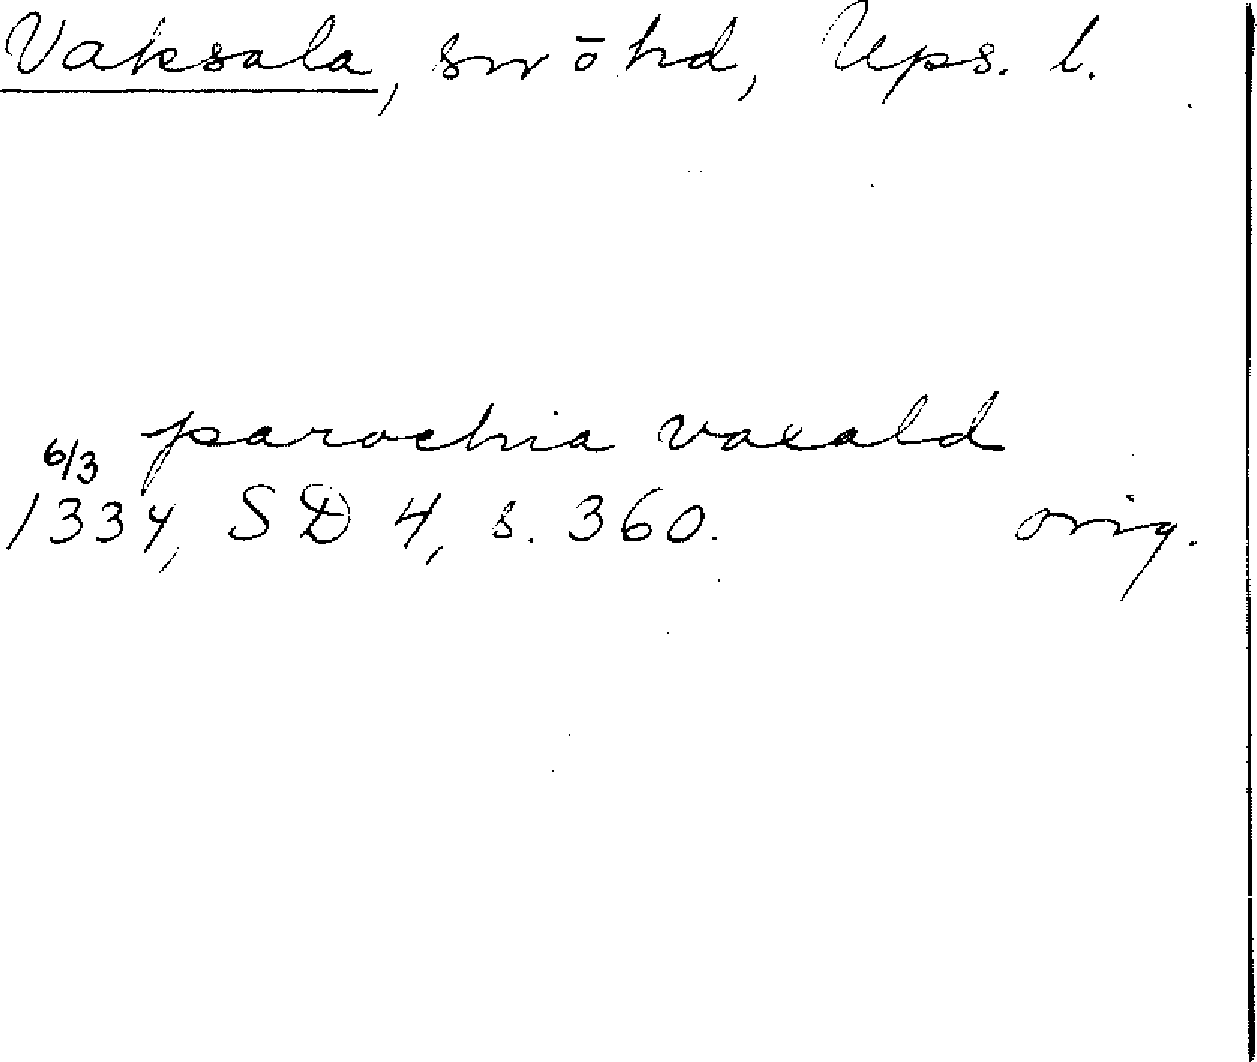 Vaksala, sn o hd, Ups. l.
parochia vaxald
6/3
1334, SD 4, s. 360. orig.